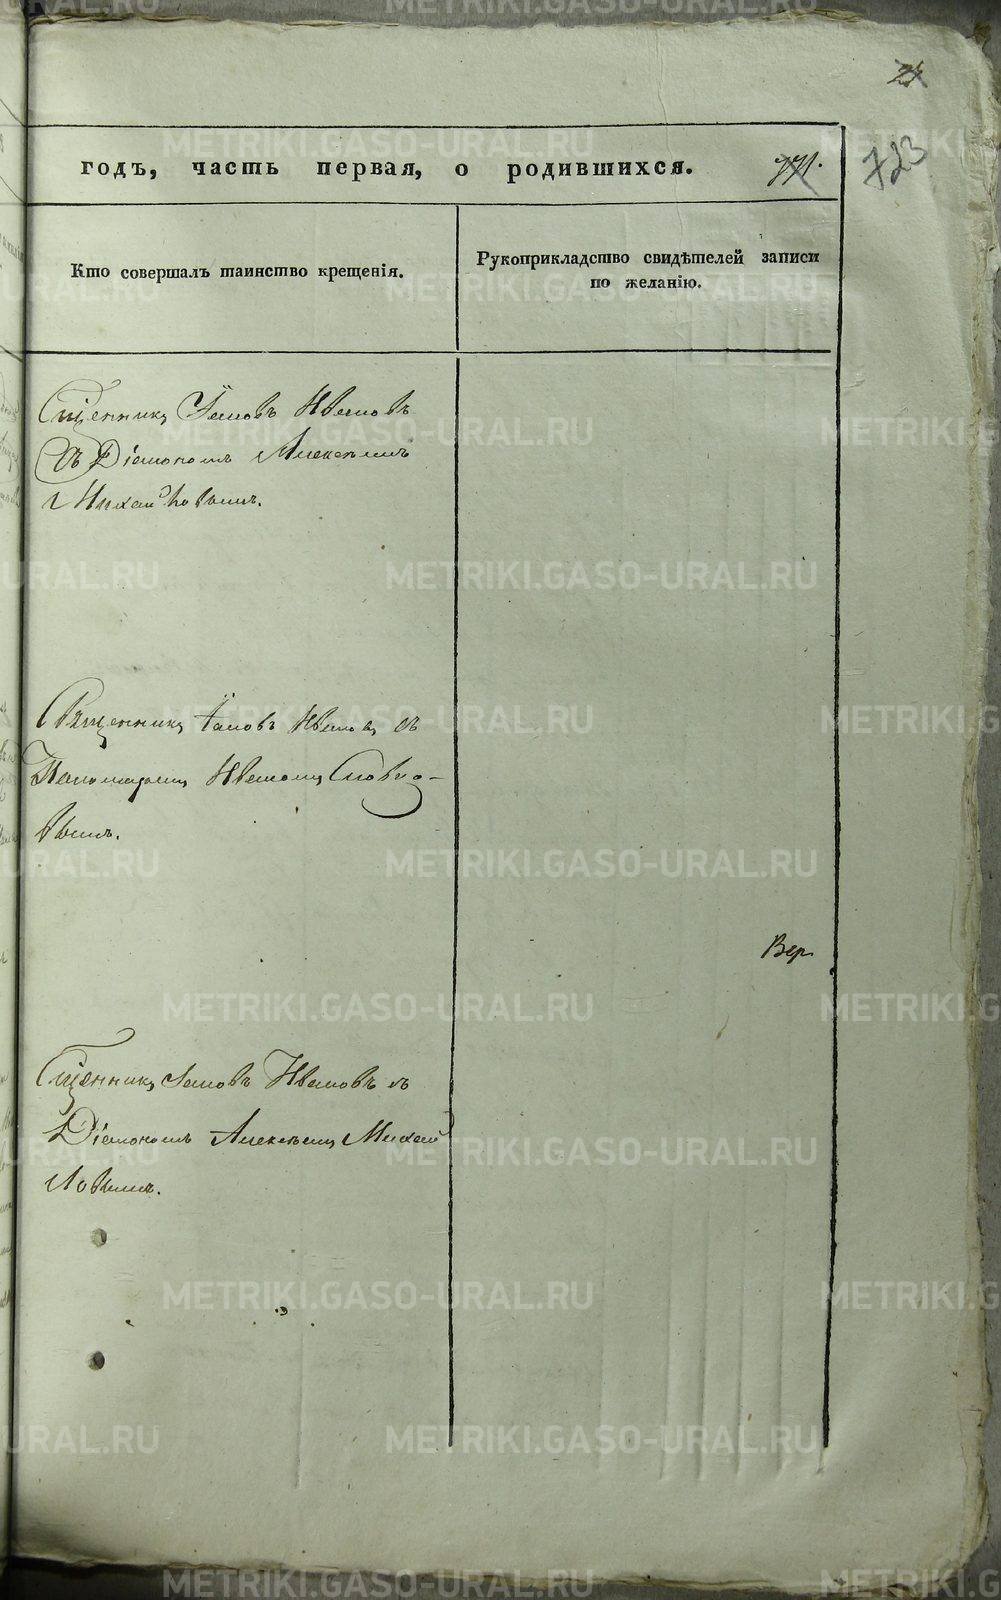 годъ, часть первая, о родившихся.
723
Кто совершалъ таинство крещенія.
Рукоприкладство свидѣтелей записи
по желанію.
Сщенникъ Іаковъ Ивановъ
съ Діакономъ Алексѣемъ
Михайловымъ.
Священникъ Іаковъ Ивановъ съ
Пономаремъ Иваномъ Словцо-
вымъ.
Вер
Сщенникъ Іаковъ Ивановъ съ
Діакономъ Алексѣемъ Михай
ловымъ.
METRIKI.GASO-URAL.RU